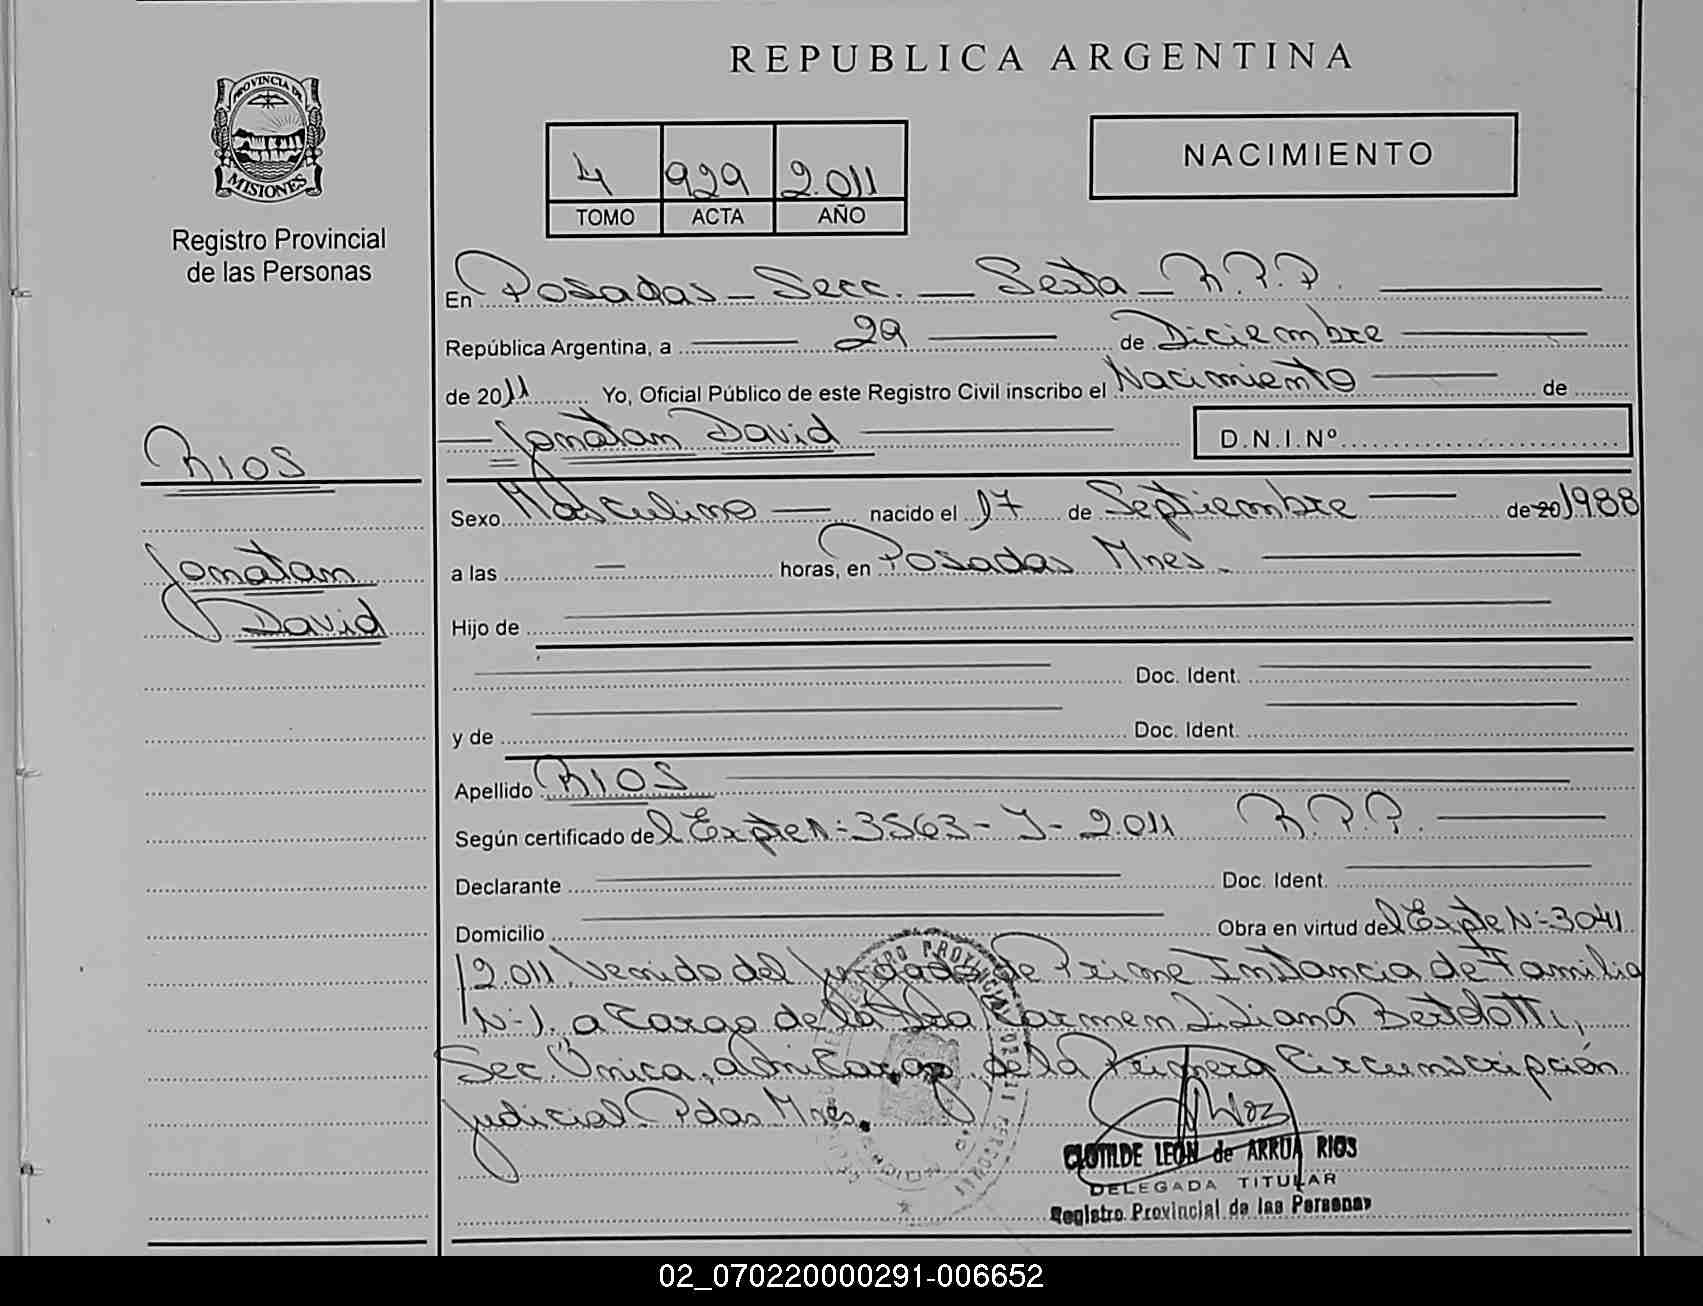 REPUBLICA ARGENTINA
PROVINCIA DE
MISIONES
Registro Provincial
de las Personas
4 929 2.011
TOMO ACTA AÑO
NACIMIENTO
En Posadas - Secc. - Sexta - R.P.P.
República Argentina, a 29 de Diciembre
de 2011 Yo, Oficial Público de este Registro Civil inscribo el Nacimiento de
Jonatan David D.N.I.Nº
RIOS
Jonatan
David
Sexo Masculino nacido el 17 de Septiembre de 20 1988
a las — horas, en Posadas Mnes.
Hijo de
Doc. Ident.
y de Doc. Ident.
Apellido RIOS
Según certificado del Expte N:-3563-J-2.011 R.P.P.
Declarante Doc. Ident.
Domicilio Obra en virtud del Expte N:-3041
/2.011 Venido del Juzgado de Prime Instancia de Familia
N:-1. a Cargo de la Dra Carmen Liliana Bertolotti,
Sec. Única, a mi Cargo, de la Primera Circunscripción
Judicial Pdas Mnes.
CLOTILDE LEON de ARRUA RIOS
DELEGADA TITULAR
Registro Provincial de las Personas
02_070220000291-006652